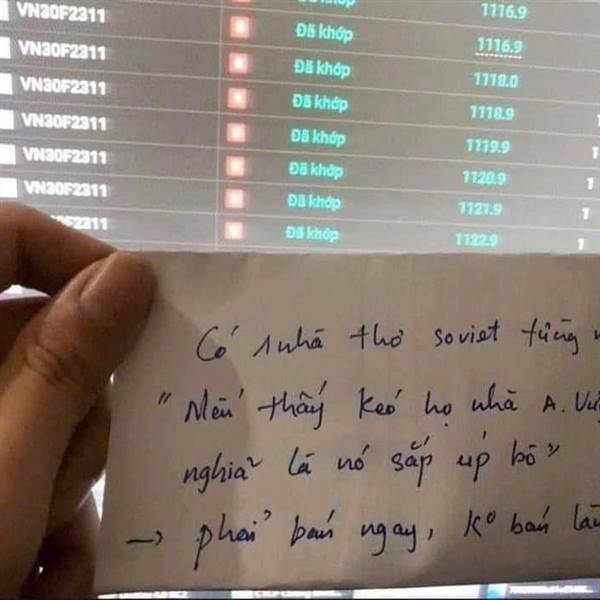 VN30F2311 Đã khớp 1116.9
VN30F2311 Đã khớp 1116.9
VN30F2311 Đã khớp 1118.0
VN30F2311 Đã khớp 1118.9
VN30F2311 Đã khớp 1119.9 1
VN30F2311 Đã khớp 1120.9 1
Đã khớp 1121.9 1
Đã khớp 1122.9 1
Có 1 nhà thơ soviet từng
"Nếu thấy kéo họ nhà A.
nghĩa là nó sắp úp bô"
→ phải bán ngay, ko bán